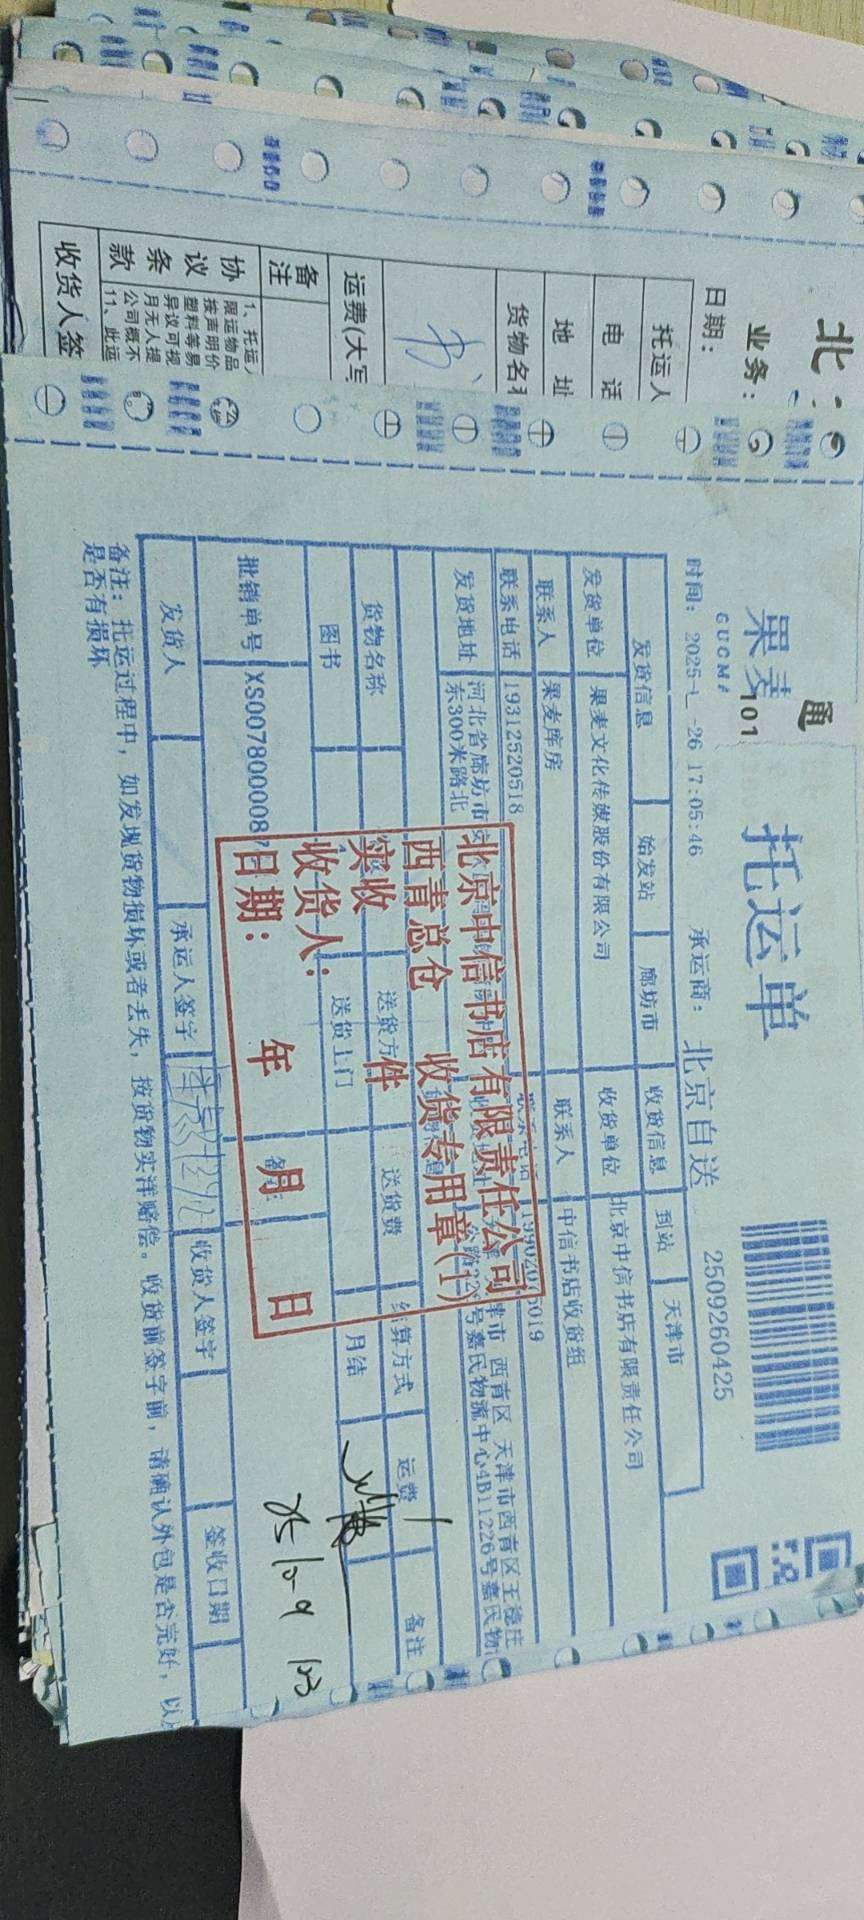 北
业务：
日期：
托运人
电 话
地 址
货物名称
书
运费(大写
备注
协议条款
1、托运
限运物品
按声明价
塑料等易
异议可视
月无人提
公司概不
11、此运
收货人签
果麦
GUCMA
101
托运单
时间: 2025- -26 17:05:46
承运商: 北京自送
2509260425
发货信息 始发站 廊坊市 收货信息 到站 天津市
发货单位 果麦文化传媒股份有限公司 收货单位 北京中信书店有限责任公司
联系人 果麦库房 联系人 中信书店收货组
联系电话 19312520518 联系电话
发货地址 河北省廊坊市
东300米路北
津市 西青区 天津市西青区王稳庄
号嘉民物流中心4B11226号嘉民物流
货物名称 送货方 送货费 结算方式 运费 备注
图书 送货上门 月结
批销单号 XS00780008
发货人 承运人签字 收货人签字 签收日期
备注: 托运过程中, 如发现货物损坏或者丢失, 按货物实洋赔偿。收货前签字前, 请确认外包是否完好, 以
是否有损坏
北京中信书店有限责任公司
西青总仓 收货专用章(1)
实收 件
收货人：
日期： 年 月 日
1
25 10-9